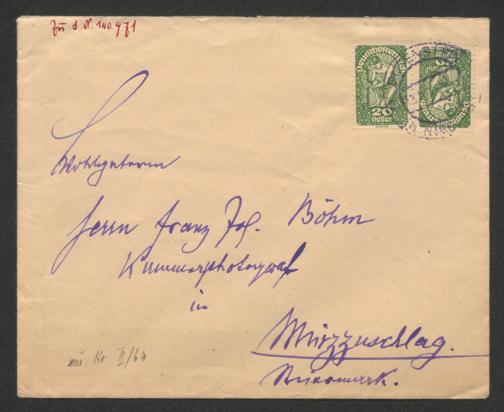 Zu d. N. 140.971
Deutschösterreich
20
Heller
Wohlgeboren
Herrn Franz Jos. Böhm
Kammerphotograf
in
Mürzzuschlag.
Steiermark.
II/64